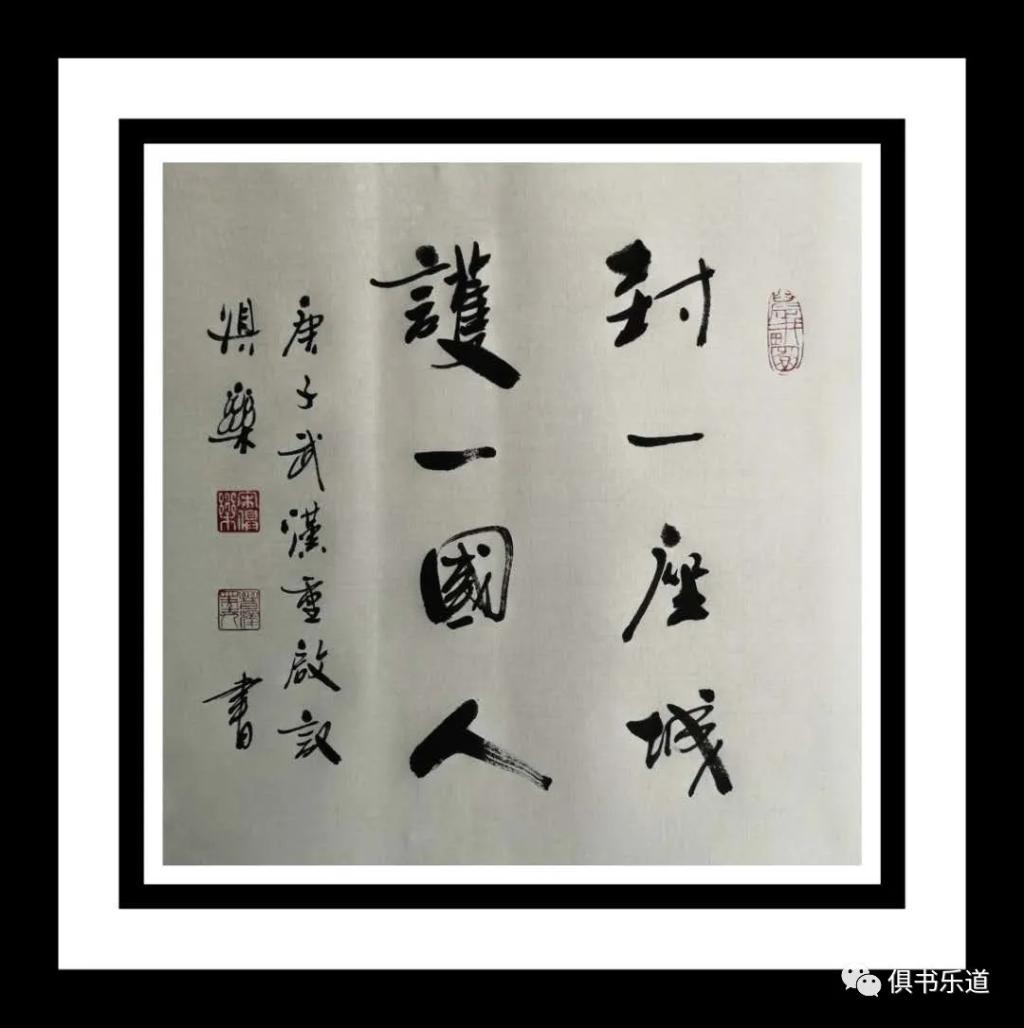 封一座城
護一國人
庚子武漢重啟記
俱樂
書
俱书乐道